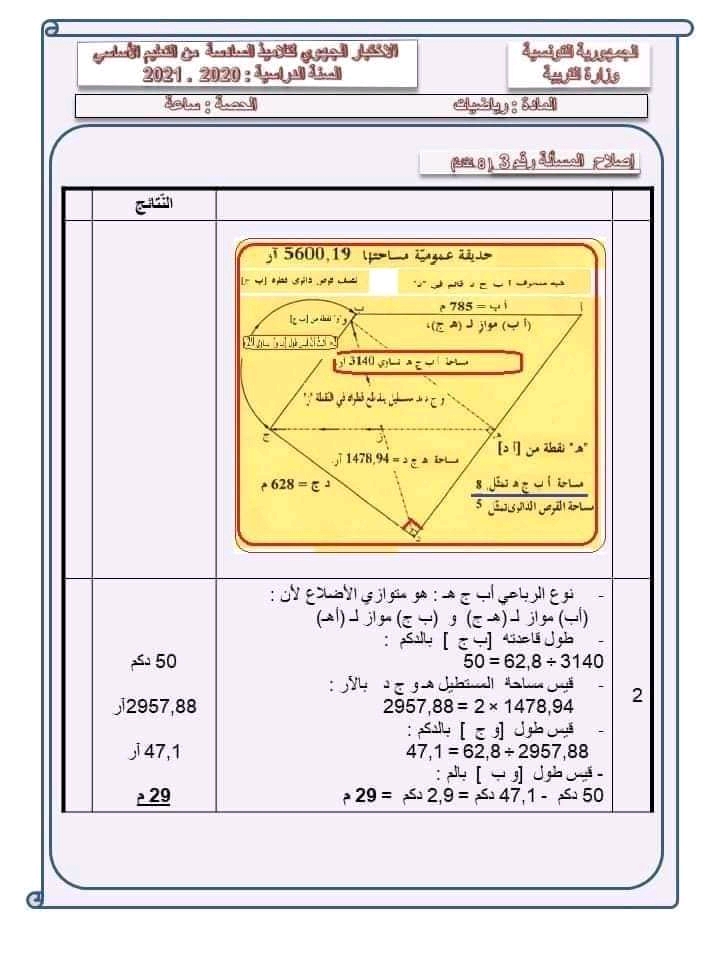 الجمهورية التونسية
وزارة التربية
الاختبار الجهوي لتلاميذ السادسة من التعليم الأساسي
السنة الدراسية : 2020 . 2021
المادة : رياضيات
الحصة : ساعة
إصلاح المسألة رقم 3 ( 8
النتائج
حديقة عمومية مساحتها 5600,19 آر
شبه منحرف أ ب ج د قائم في "د"
نصف قرص دائري قطره [ب ج]
أ ب = 785 م
أ
ب
"و" نقطة من [ب ج]
(أ ب) مواز لـ (هـ ج)،
مساحة أ ب ج هـ تساوي 3140 آر
و ج د هـ مستطيل يتقاطع قطراه في النقطة "ز"
ج
ز
هـ
"هـ" نقطة من [أ د]
مساحة هـ ج د = 1478,94 آر.
د ج = 628 م
مساحة أ ب ج هـ تمثل 8
مساحة القرص الدائري تمثل 5
د
2
- نوع الرباعي أب ج هـ : هو متوازي الأضلاع لأن :
(أب) مواز لـ (هـ ج) و (ب ج) مواز لـ (أهـ)
- طول قاعدته [ب ج ] بالدكم :
3140 ÷ 62,8 = 50
50 دكم
- قيس مساحة المستطيل هـ و ج د بالآر :
1478,94 × 2 = 2957,88
2957,88آر
- قيس طول [و ج ] بالدكم :
2957,88 ÷ 62,8 = 47,1
47,1 آر
- قيس طول [و ب ] بالم :
50 دكم - 47,1 دكم = 2,9 دكم = 29 م
29 م